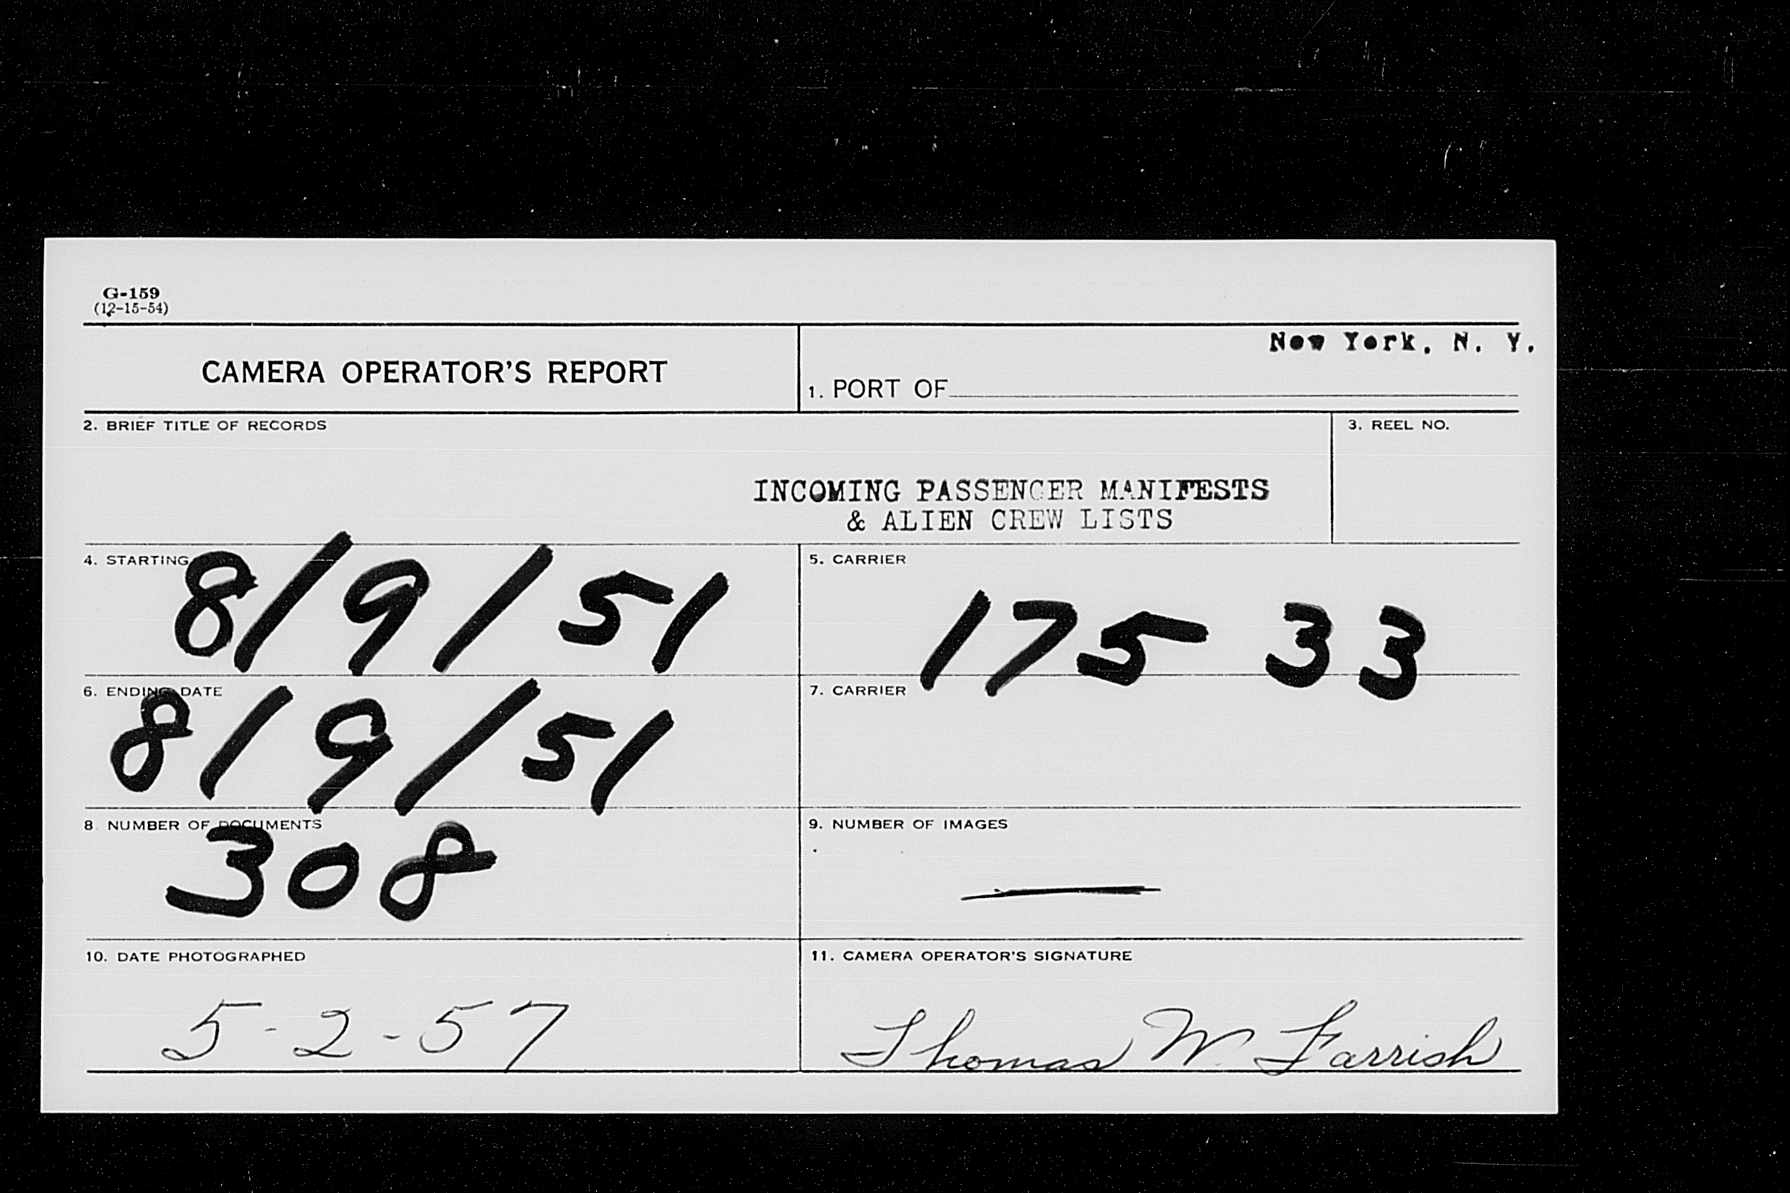 G-159
(12-15-54)
CAMERA OPERATOR'S REPORT
New York, N. Y.
1. PORT OF
2. BRIEF TITLE OF RECORDS
3. REEL NO.
INCOMING PASSENGER MANIFESTS
& ALIEN CREW LISTS
4. STARTING
8/9/51
5. CARRIER
175 33
6. ENDING DATE
8/9/51
7. CARRIER
8 NUMBER OF DOCUMENTS
308
9. NUMBER OF IMAGES
—
10. DATE PHOTOGRAPHED
5-2-57
11. CAMERA OPERATOR'S SIGNATURE
Thomas W. Farrish